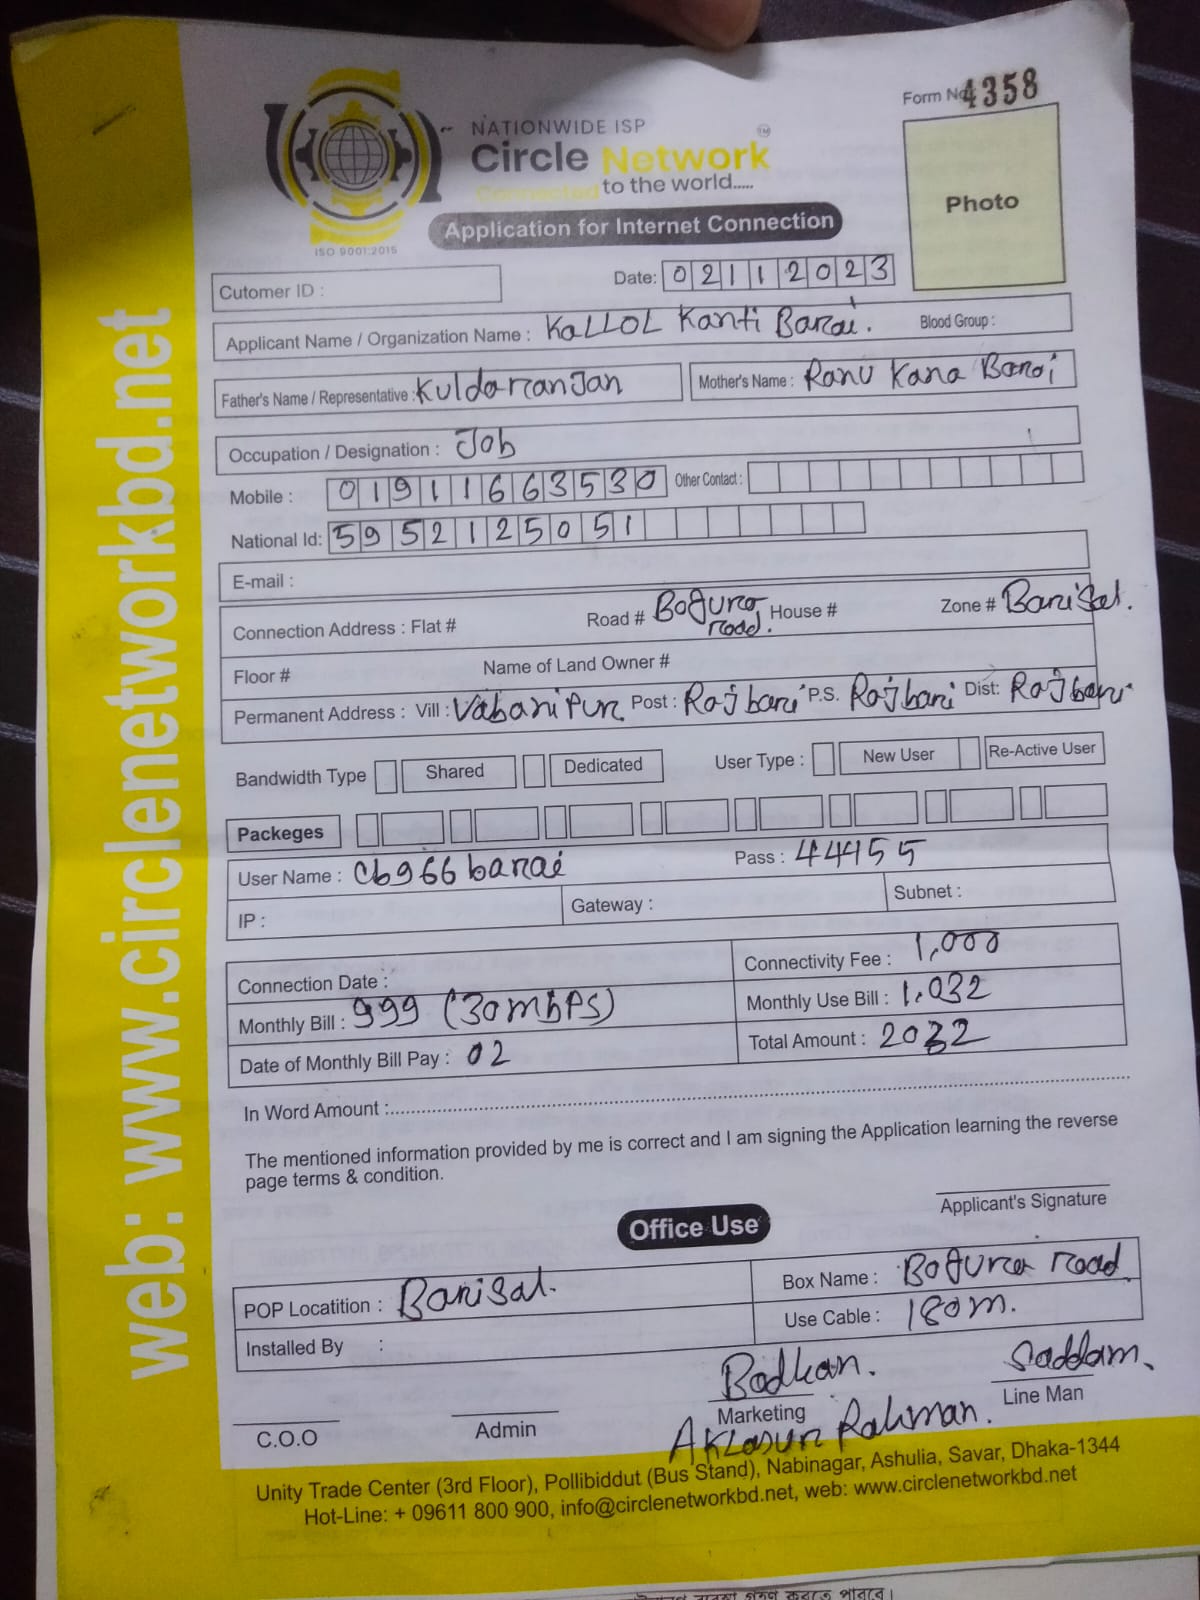 Form No. 4358
NATIONWIDE ISP
Circle Network TM
Connected to the world.....
Application for Internet Connection
ISO 9001:2015
Photo
Cutomer ID :
Date: 02112023
Applicant Name / Organization Name : KaLLOL Kanti Barai. Blood Group :
Father's Name / Representative : Kuldarranjan Mother's Name : Ranu Kana Barai
Occupation / Designation : Job
Mobile : 01911663530 Other Contact :
National Id: 5952125051
E-mail :
Connection Address : Flat # Road # Bogura road. House # Zone # Barisal.
Floor # Name of Land Owner #
Permanent Address : Vill : Vabanipur Post : Rajbari P.S. Rajbari Dist: Rajbari
Bandwidth Type Shared Dedicated User Type : New User Re-Active User
Packeges
User Name : cb966barai Pass : 44455
IP : Gateway : Subnet :
Connection Date : Connectivity Fee : 1,000
Monthly Bill : 999 (30mbPS) Monthly Use Bill : 1,032
Date of Monthly Bill Pay : 02 Total Amount : 2032
In Word Amount :
The mentioned information provided by me is correct and I am signing the Application learning the reverse
page terms & condition.
Applicant's Signature
Office Use
POP Locatition : Barisal. Box Name : Bogura road
Installed By : Use Cable : 180m.
Saddam.
Marketing Line Man
C.O.O Admin
Rahman.
Unity Trade Center (3rd Floor), Pollibiddut (Bus Stand), Nabinagar, Ashulia, Savar, Dhaka-1344
Hot-Line: + 09611 800 900, info@circlenetworkbd.net, web: www.circlenetworkbd.net
web: www.circlenetworkbd.net